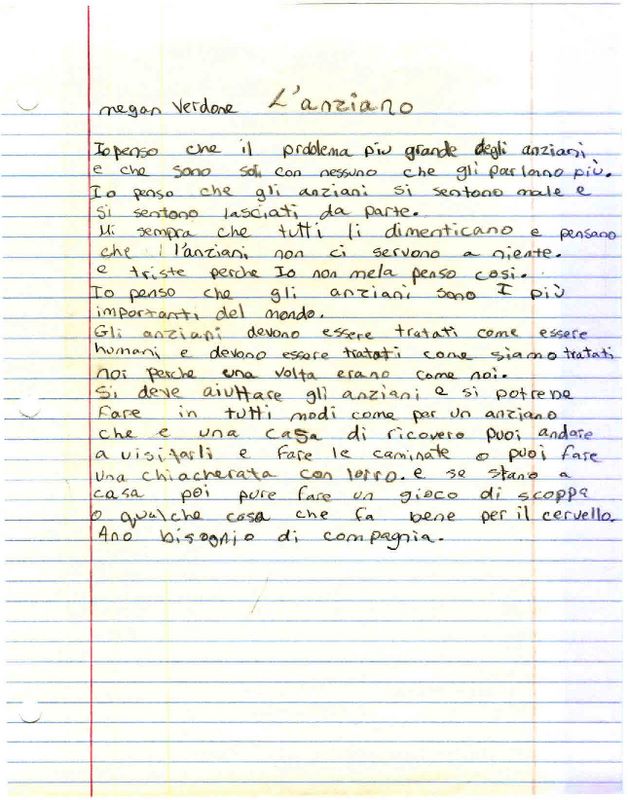 megan Verdone L'anziano
Io penso che il problema piu grande degli anziani
e che sono soli con nessuno che gli parlano più.
Io penso che gli anziani si sentono male e
si sentono lasciati da parte.
Mi sempra che tutti li dimenticano e pensano
che l'anziani non ci servono a niente.
e triste perche Io non mela penso cosi.
Io penso che gli anziani sono I più
importanti del mondo.
Gli anziani devono essere tratati come essere
humani e devono essere tratati come siamo tratati
noi perche una volta erano come noi.
Si deve aiuttare gli anziani e si potrebe
fare in tutti modi come per un anziano
che e una casa di ricovero puoi andare
a visitarli e fare le caminate o puoi fare
una chiacherata con lorro. e se stano a
casa poi pure fare un gioco di scoppa
o qualche cosa che fa bene per il cervello.
Ano bisognio di compagnia.